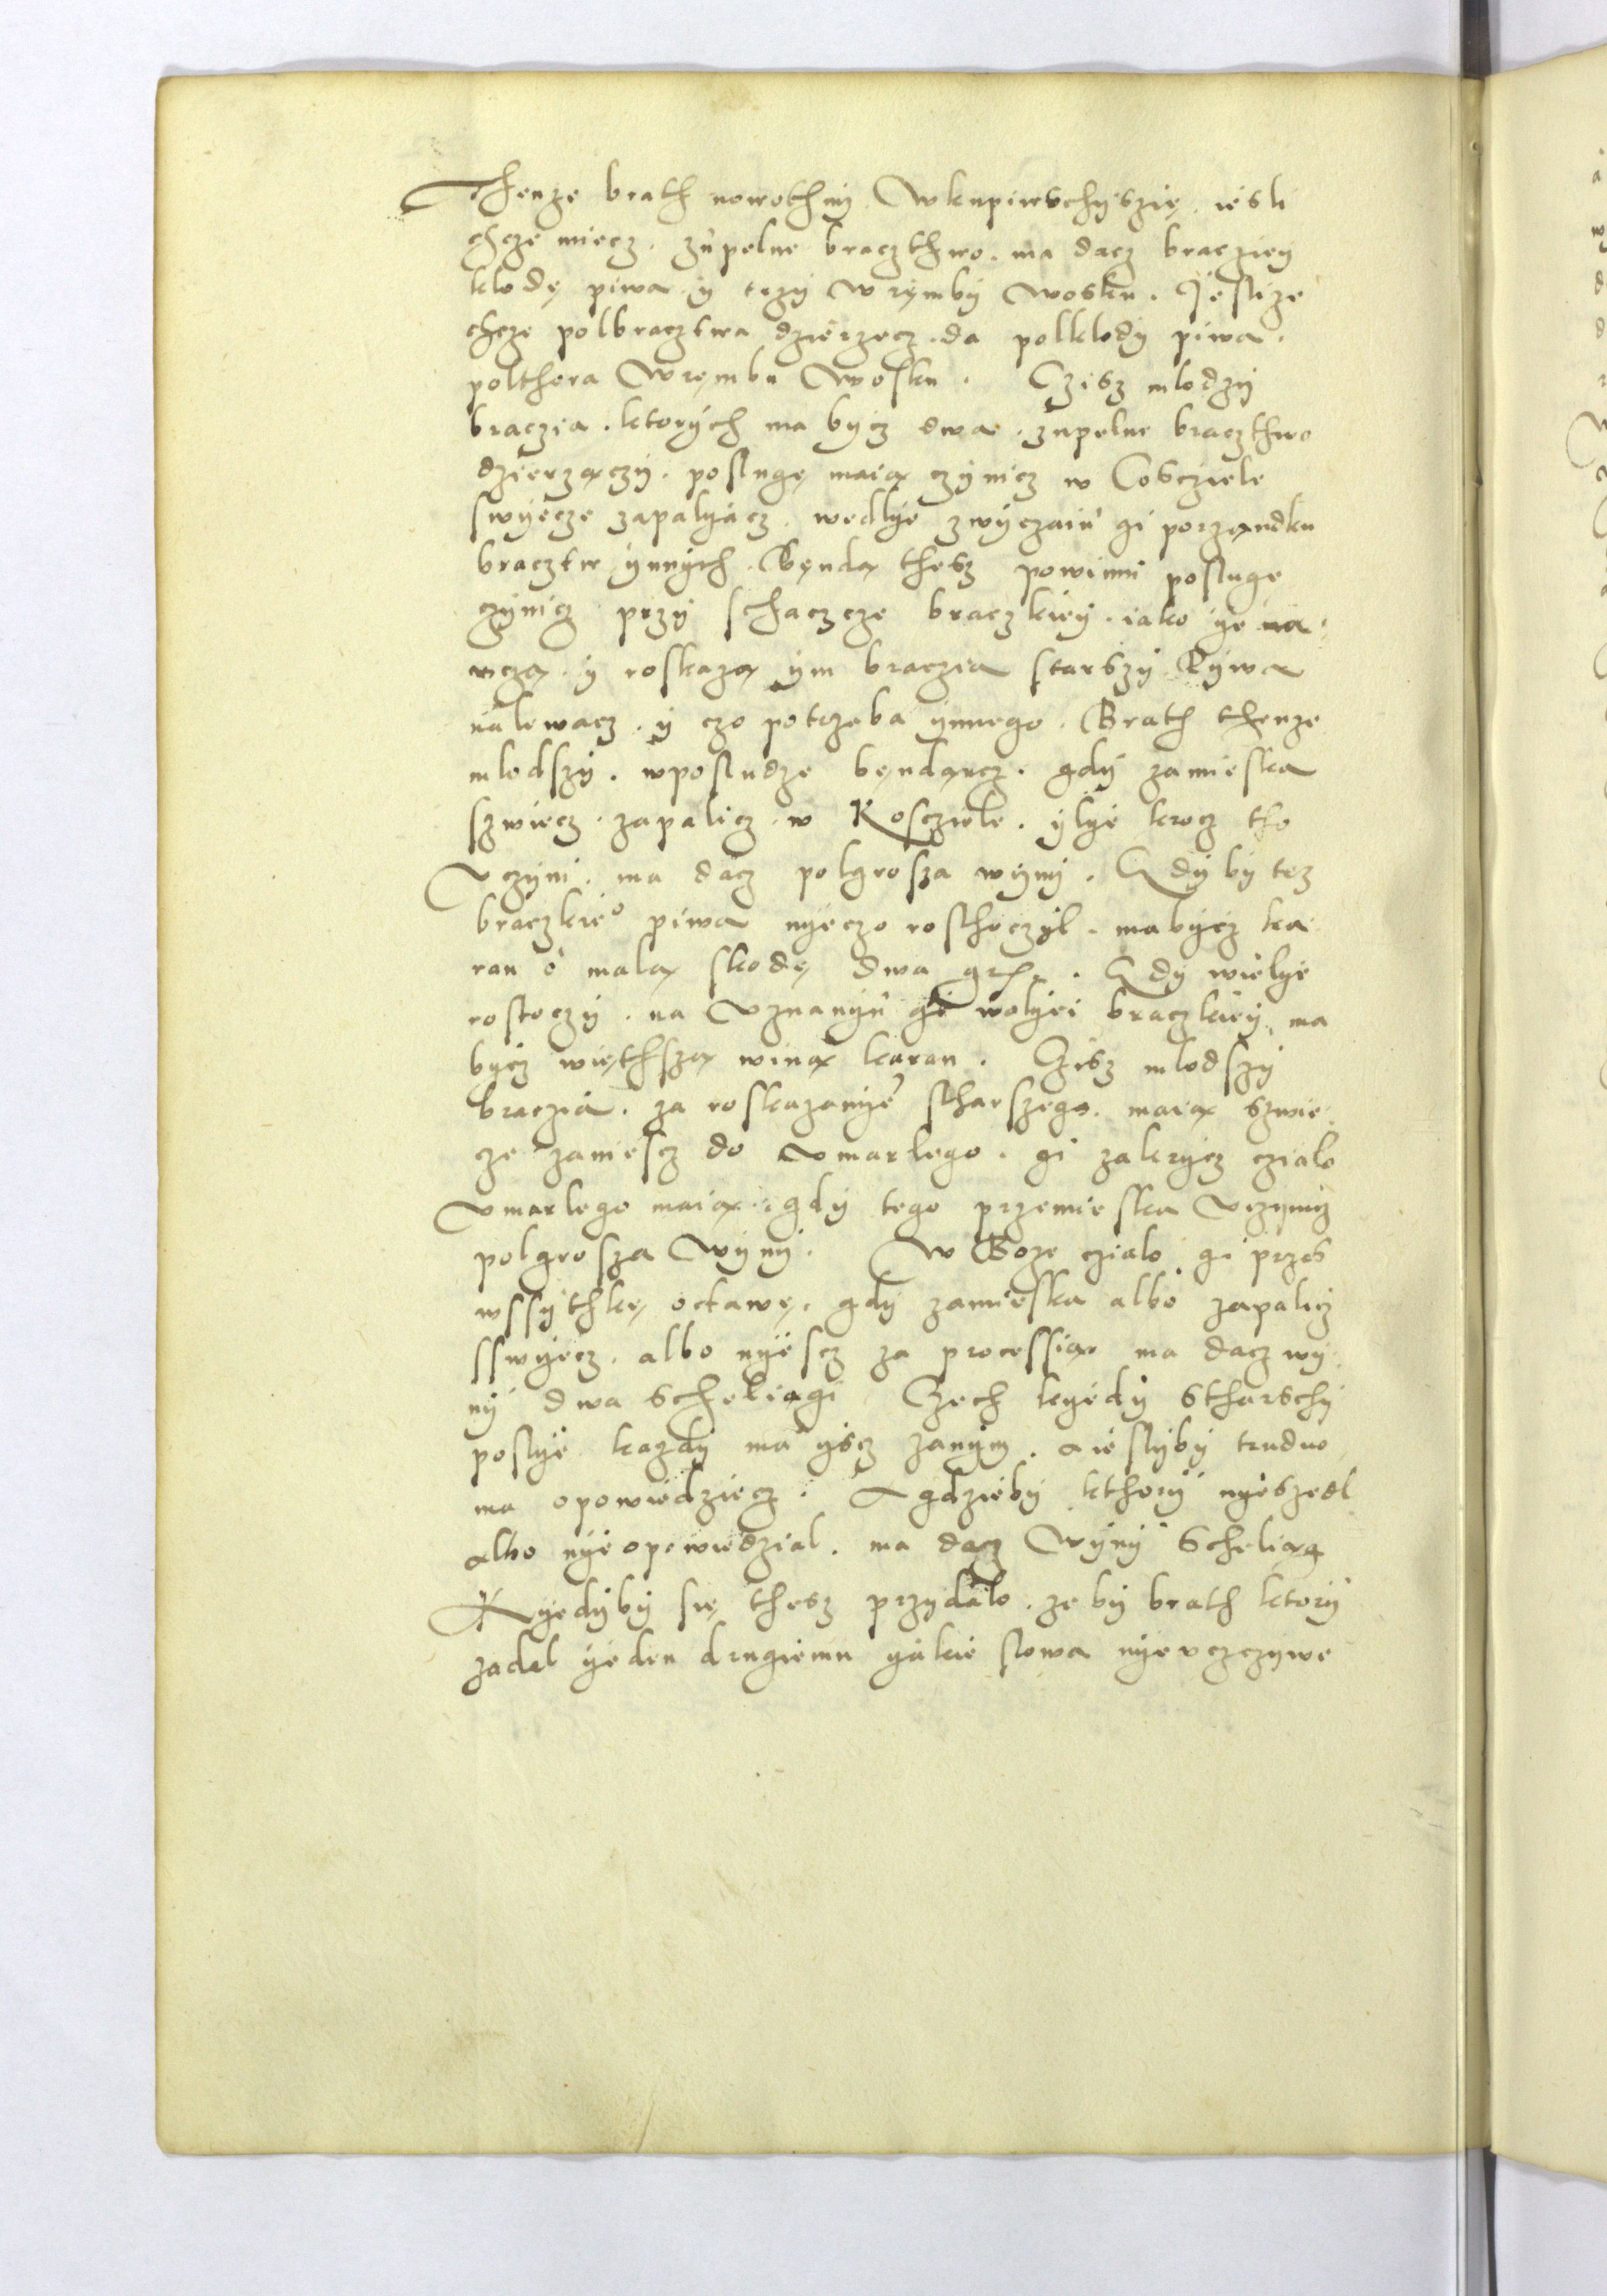 Thenze brath nowothny Wkupiwschyszię iesli
chcze miecz. zupelne braczthwo. ma dacz bracziey
klodę piwa y trzy wręmby wosku. Jeslize
chcze polbracztwa dzierzecz. da polklody piwa.
polthora Wrembu Wosku. Czisz mlodzy
braczia. ktorych ma bycz dwa. zupelne braczthwo
dzierzaczy. poslugę maią czynicz w Cosczielе
swyecze zapalyacz. wedlye zwyczaiu gi porzandku
bracztw ynnych. Bęndą thesz powinni poslugę
czynicz przy schaczcze braczkiey. iako ye na
uczą. y roskazą ym braczia starszy Pywa
nalewacz. y czo potrzeba ynnego. Brath thenze
mlodszy. wposludze bęndącz. gdy zamieska
szwiecz. zapalicz. w Koscziele. ylye krocz tho
Vczyni. ma dacz polgrosza wyny. Gdy by tez
braczkie° piwa nyeczo rosthoczyl. ma bycz ka
ran o malą skodę dwa gr. Gdy wielye
rostoczy. na Vznanyu gi wolyei braczkiey ma
bycz więthszą winą karan. Czisz mlodszy
braczia. za roskazanye stharszego. maią szwie
cze zaniescz do Vmarlego. gi zakrycz czialo
Vmarlego maią. gdy tego przemieska Vczyniз
polgrosza Wyny. W Boze czialo gi przes
wssythkę octawę. gdy zamieska albo zapalicz
sswyecz. albo nyescz za processią ma dacz wy
ny dwa scheliągi Czech kyedy stharschy
poslye kazdy ma yscz zanym. a ieslyby trudno
ma opowiedziecz. A gdzieby kthory nyeszedl
albo nyeopowiedzial. ma dacz Wyny Scheliąg
Kyedyby się thesz przydalo. ze by brath ktory
zadal yeden drugiemu yakie slowa nyeuczczywe